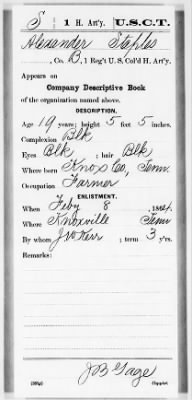 S 1 H. Art'y. U.S.C.T.
Alexander Staples
, Co. B, 1 Reg't U. S. Col'd H. Art'y.
Appears on
Company Descriptive Book
of the organization named above.
DESCRIPTION.
Age 19 years; height 5 feet 5 inches.
Complexion Blk
Eyes Blk ; hair Blk
Where born Knox Co, Tenn
Occupation Farmer
ENLISTMENT.
When Feby 8 , 1864.
Where Knoxville Tenn
By whom J W Kerr ; term 3 y'rs.
Remarks:
J B Gage
Copyist.